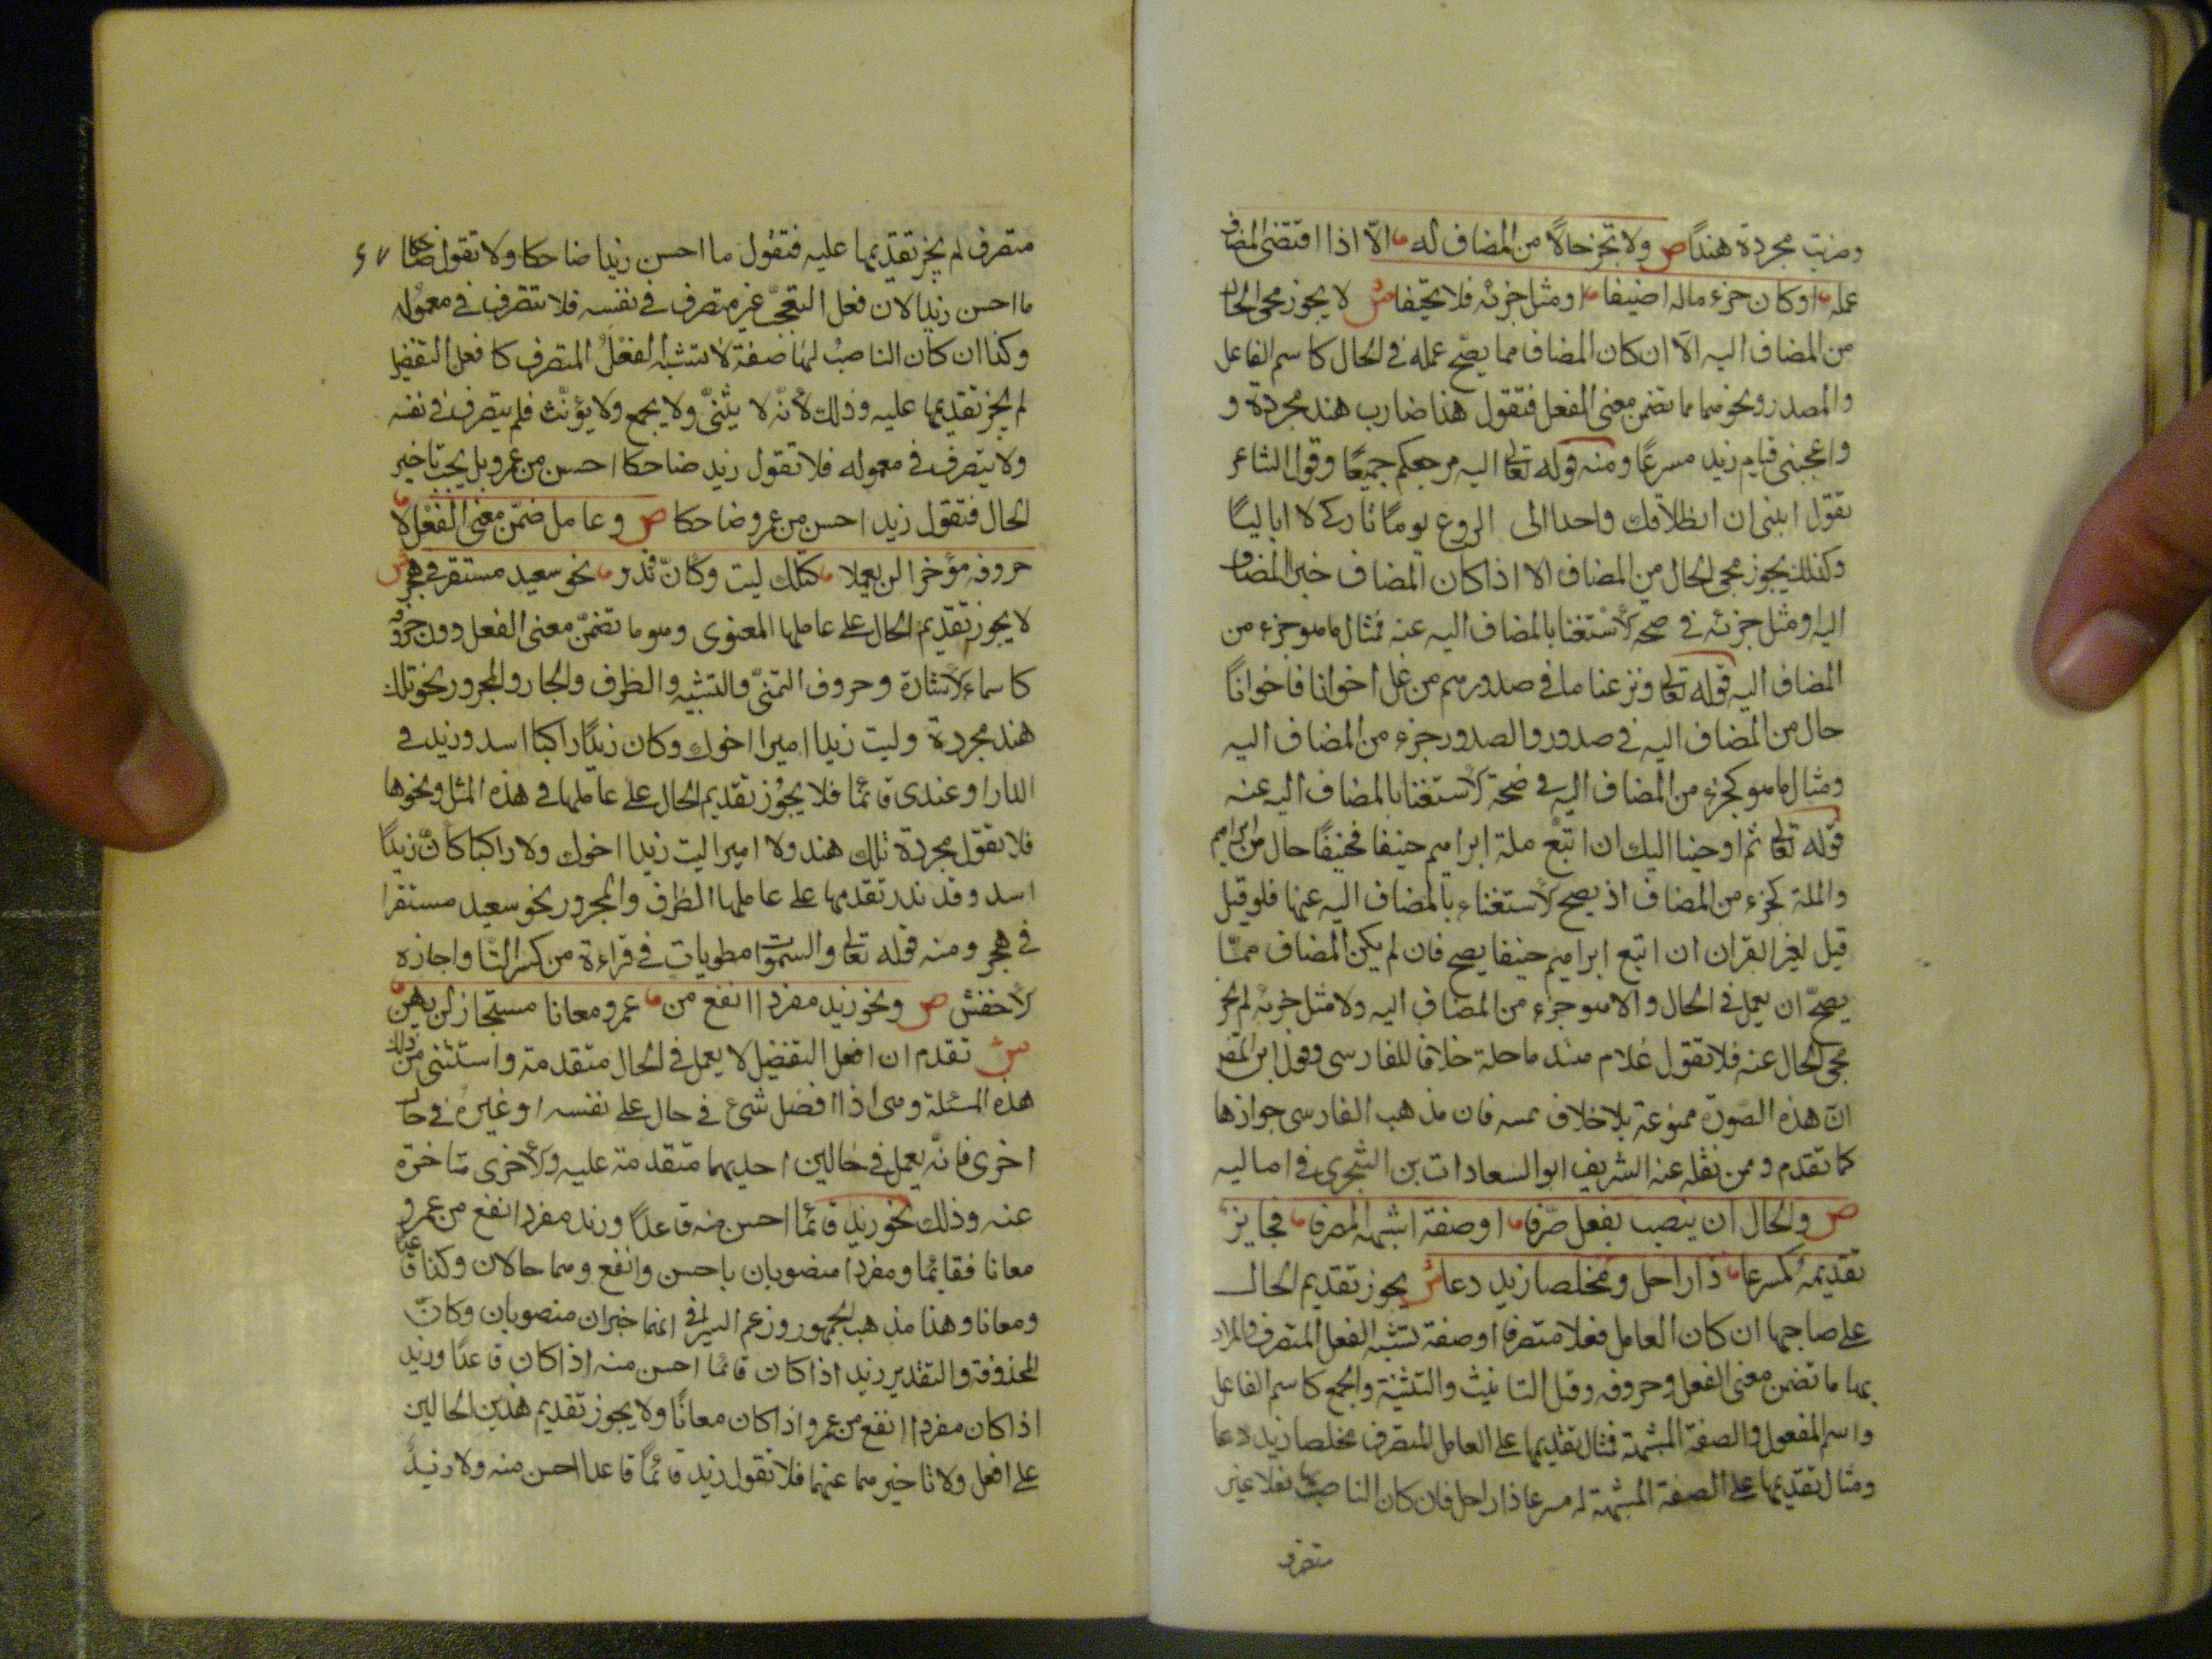 وضربت مجردة هندًا ص ولا تجز حالًا من المضاف له الّا اذا اقتضى المضاف
عمله او كان جزء ماله اضيفا او مثل جزئه فلا تحيفا ش لا يجوز مجي الحال
من المضاف اليه الا ان كان المضاف مما يصح عمله في الحال كاسم الفاعل
والمصدر ونحوهما مما تضمن معنى الفعل فتقول هذا ضارب هند مجردة و
واعجبنى قيام زيد مسرعًا ومنه قوله تعالى اليه مرجعكم جميعًا وقول الشاعر
تقول ابنتى ان انطلاقك واحدا الى الروع يومًا تاركى لا اباليًا
وكذلك يجوز مجى الحال من المضاف الا اذا كان المضاف جزء المضاف
اليه او مثل جزئه في صحة الاستغنا بالمضاف اليه عنه فمثال ما هو جزء من
المضاف اليه قوله تعالى ونزعنا ما في صدورهم من غل اخوانا فاخوانًا
حال من المضاف اليه في صدور والصدور جزء من المضاف اليه
ومثال ما هو كجزء من المضاف اليه في صحة الاستغنا بالمضاف اليه عنه
قوله تعالى ثم اوحينا اليك ان اتبع ملة ابراهيم حنيفا فحنيفًا حال من ابراهيم
والملة كجزء من المضاف اذ يصح الاستغناء بالمضاف اليه عنها فلو قيل
قيل لغير القران ان اتبع ابراهيم حنيفا يصح فان لم يكن المضاف ممّا
يصحّ ان يعمل في الحال والا هو جزء من المضاف اليه ولا مثل جزئه لم يجز
مجى الحال عنه فلا تقول غلام هند ضاحكة خلافا للفارسى وقول ابن المصنف
انّ هذه الصّورة ممنوعة بلا خلاف فان مذهب الفارسى جوازها
كما تقدم وممن نقله عنه الشريف ابو السعادات بن الشجرى في اماليه
ص والحال ان ينصب بفعل صرّفا او صفة اشبهت المصرفا فجايز
تقديمه كمسرعا ذا راحل ومخلصا زيد دعا ش يجوز تقديم الحال
على صاحبها ان كان العامل فعلا متصرفا او صفة تشبه الفعل المتصرف والمراد
بها ما تضمن معنى الفعل وحروفه وقبل التانيث والتثنية والجمع كاسم الفاعل
واسم المفعول والصفة المشبهة فمثال تقديمها على العامل المتصرف مخلصا زيد دعا
ومثال تقديمها على الصفة المشبهة له مسرعا ذا راحل فان كان الناصب لها فعلا غير
متصرف
متصرف لم يجز تقديمها عليه فتقول ما احسن زيدا ضاحكا ولا تقول ضاحكا ٦٧
ما احسن زيدا لان فعل التعجّب غير متصرف في نفسه فلا يتصرف في معموله
وكذا ان كان الناصب لها صفة لا تشبه الفعل المتصرف كافعل التفضيل
لم يجز تقديمها عليه وذلك لأنّه لا يثنّى ولا يجمع ولا يؤنّث فلم يتصرف في نفسه
ولا يتصرف في معموله فلا تقول زيد ضاحكا احسن من عمرو بل يجب تاخير
الحال فتقول زيد احسن من عمرو ضاحكا ص وعامل ضمّن معنى الفعل لا
حروفه مؤخرا لن يعملا كتلك ليت وكأنّ وندر نحو سعيد مستقر في هجر ش
لا يجوز تقديم الحال على عاملها المعنوى وهو ما تضمّن معنى الفعل دون حروفه
كاسماء الاشارة وحروف التمنّى والتشبيه والظرف والجار والمجرور نحو تلك
هند مجردة وليت زيدا اميرا اخوك وكان زيدًا راكبا اسد وزيد في
الدار او عندى قائمًا فلا يجوز تقديم الحال على عاملها في هذه المثل ونحوها
فلا تقول مجردة تلك هند ولا اميرا ليت زيدا اخوك ولا راكبا كأنّ زيدًا
اسد وقد ندر تقدمها على عاملها الظرف والمجرور نحو سعيد مستقرا
في هجر ومنه قوله تعالى والسموات مطويات في قراءة من كسر التا واجازه
الاخفش ص ونحو زيد مفردا انفع من عمرو معانا مستجاز لن يهن
ش تقدم ان افعل التفضيل لا يعمل في الحال متقدمة واستثنى من ذلك
هذه المسئلة وهى اذا افضل شىء في حال على نفسه او غيره في حال
اخرى فانّه يعمل في حالين احديهما متقدمة عليه والأخرى متاخرة
عنه وذلك نحو زيد قائمًا احسن منه قاعدًا وزيد مفردا انفع من عمرو
معانا فقائما ومفردا منصوبان باحسن وانفع وهما حالان وكذا قاعدا
ومعانا وهذا مذهب الجمهور وزعم السيرافى انهما خبران منصوبان وكانّ
المحذوفة والتقدير زيد اذا كان قائما احسن منه اذا كان قاعدًا وزيد
اذا كان مفردا انفع من عمرو اذا كان معانًا ولا يجوز تقديم هذين الحالين
على افعل ولا تاخيرهما عنهما فلا تقول زيد قائمًا قاعدا احسن منه ولا زيدٌ